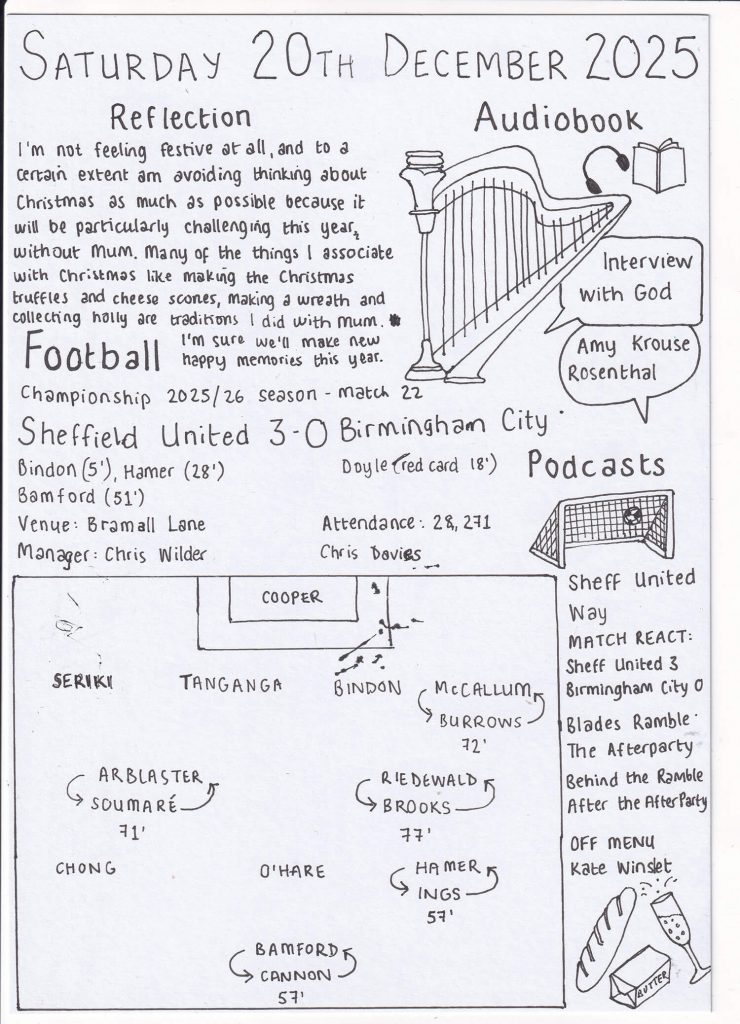 SATURDAY 20TH DECEMBER 2025
Reflection
I'm not feeling festive at all, and to a
certain extent am avoiding thinking about
Christmas as much as possible because it
will be particularly challenging this year,
without Mum. Many of the things I associate
with Christmas like making the Christmas
truffles and cheese scones, making a wreath and
collecting holly are traditions I did with Mum.
I'm sure we'll make new
happy memories this year.
Audiobook
Interview
with God
Amy Krouse
Rosenthal
Football
Championship 2025/26 season - match 22
Sheffield United 3-0 Birmingham City
Bindon (5'), Hamer (28')
Doyle (red card 18')
Bamford (51')
Venue: Bramall Lane
Attendance: 28,271
Manager: Chris Wilder
Chris Davies
COOPER
SERIKI
TANGANGA
BINDON
McCALLUM
BURROWS
72'
ARBLASTER
SOUMARÉ
71'
RIEDEWALD
BROOKS
77'
CHONG
O'HARE
HAMER
INGS
57'
BAMFORD
CANNON
57'
Podcasts
Sheff United
Way
MATCH REACT:
Sheff United 3
Birmingham City 0
Blades Ramble
The Afterparty
Behind the Ramble
After the AfterParty
OFF MENU
Kate Winslet
BUTTER